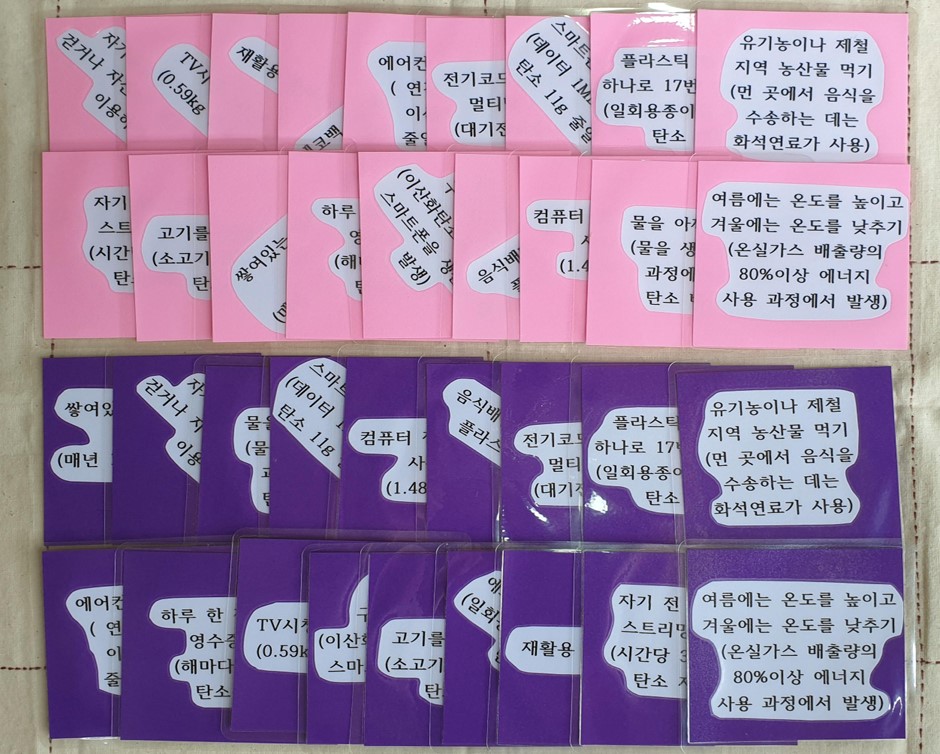 걷거나
이용하
TV시
(0.59kg
재활용
에어컨
( 연
줄일
전기코드
멀티
(대기전
스마트
(데이터 1M
탄소 11g 줄일
플라스틱
하나로 17번
(일회용종이
탄소
유기농이나 제철
지역 농산물 먹기
(먼 곳에서 음식을
수송하는 데는
화석연료가 사용)
자기
스트
(시간
탄
고기를
(소고기
탄
쌓여있는
하루
영
(해
(이산화탄소
스마트폰을
발생)
음식배
컴퓨터
(1.4
물을 아
(물을 생
과정에
탄소
여름에는 온도를 높이고
겨울에는 온도를 낮추기
(온실가스 배출량의
80%이상 에너지
사용 과정에서 발생)
쌓여있
(매년
걷거나
이용
물을
스마트
(데이터
탄소 11g
컴퓨터
사
(1.48
음식배
플라스
전기코드
멀티
(대기전
플라스틱
하나로 17번
(일회용종이
탄소
유기농이나 제철
지역 농산물 먹기
(먼 곳에서 음식을
수송하는 데는
화석연료가 사용)
에어컨
( 연
이
줄
하루 한
영수증
(해마다
탄소
TV시청
(0.59k
(이산화
스마
고기를
(소고기
탄
(일회용
재활용
자기 전
스트리밍
(시간당
탄소
여름에는 온도를 높이고
겨울에는 온도를 낮추기
(온실가스 배출량의
80%이상 에너지
사용 과정에서 발생)